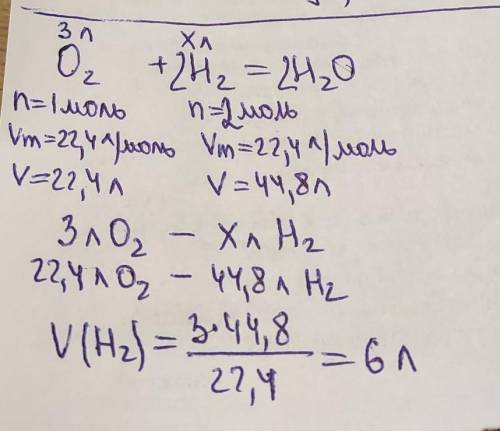 3 л хл
O₂ +2H₂ = 2H₂O
n=1моль n=2моль
Vm=22,4 л/моль Vm=22,4 л/моль
V=22,4 л V=44,8 л
3 л O₂ – X л H₂
22,4 л O₂ – 44,8 л H₂
V(H₂) = 3·44,8 / 22,4 = 6 л